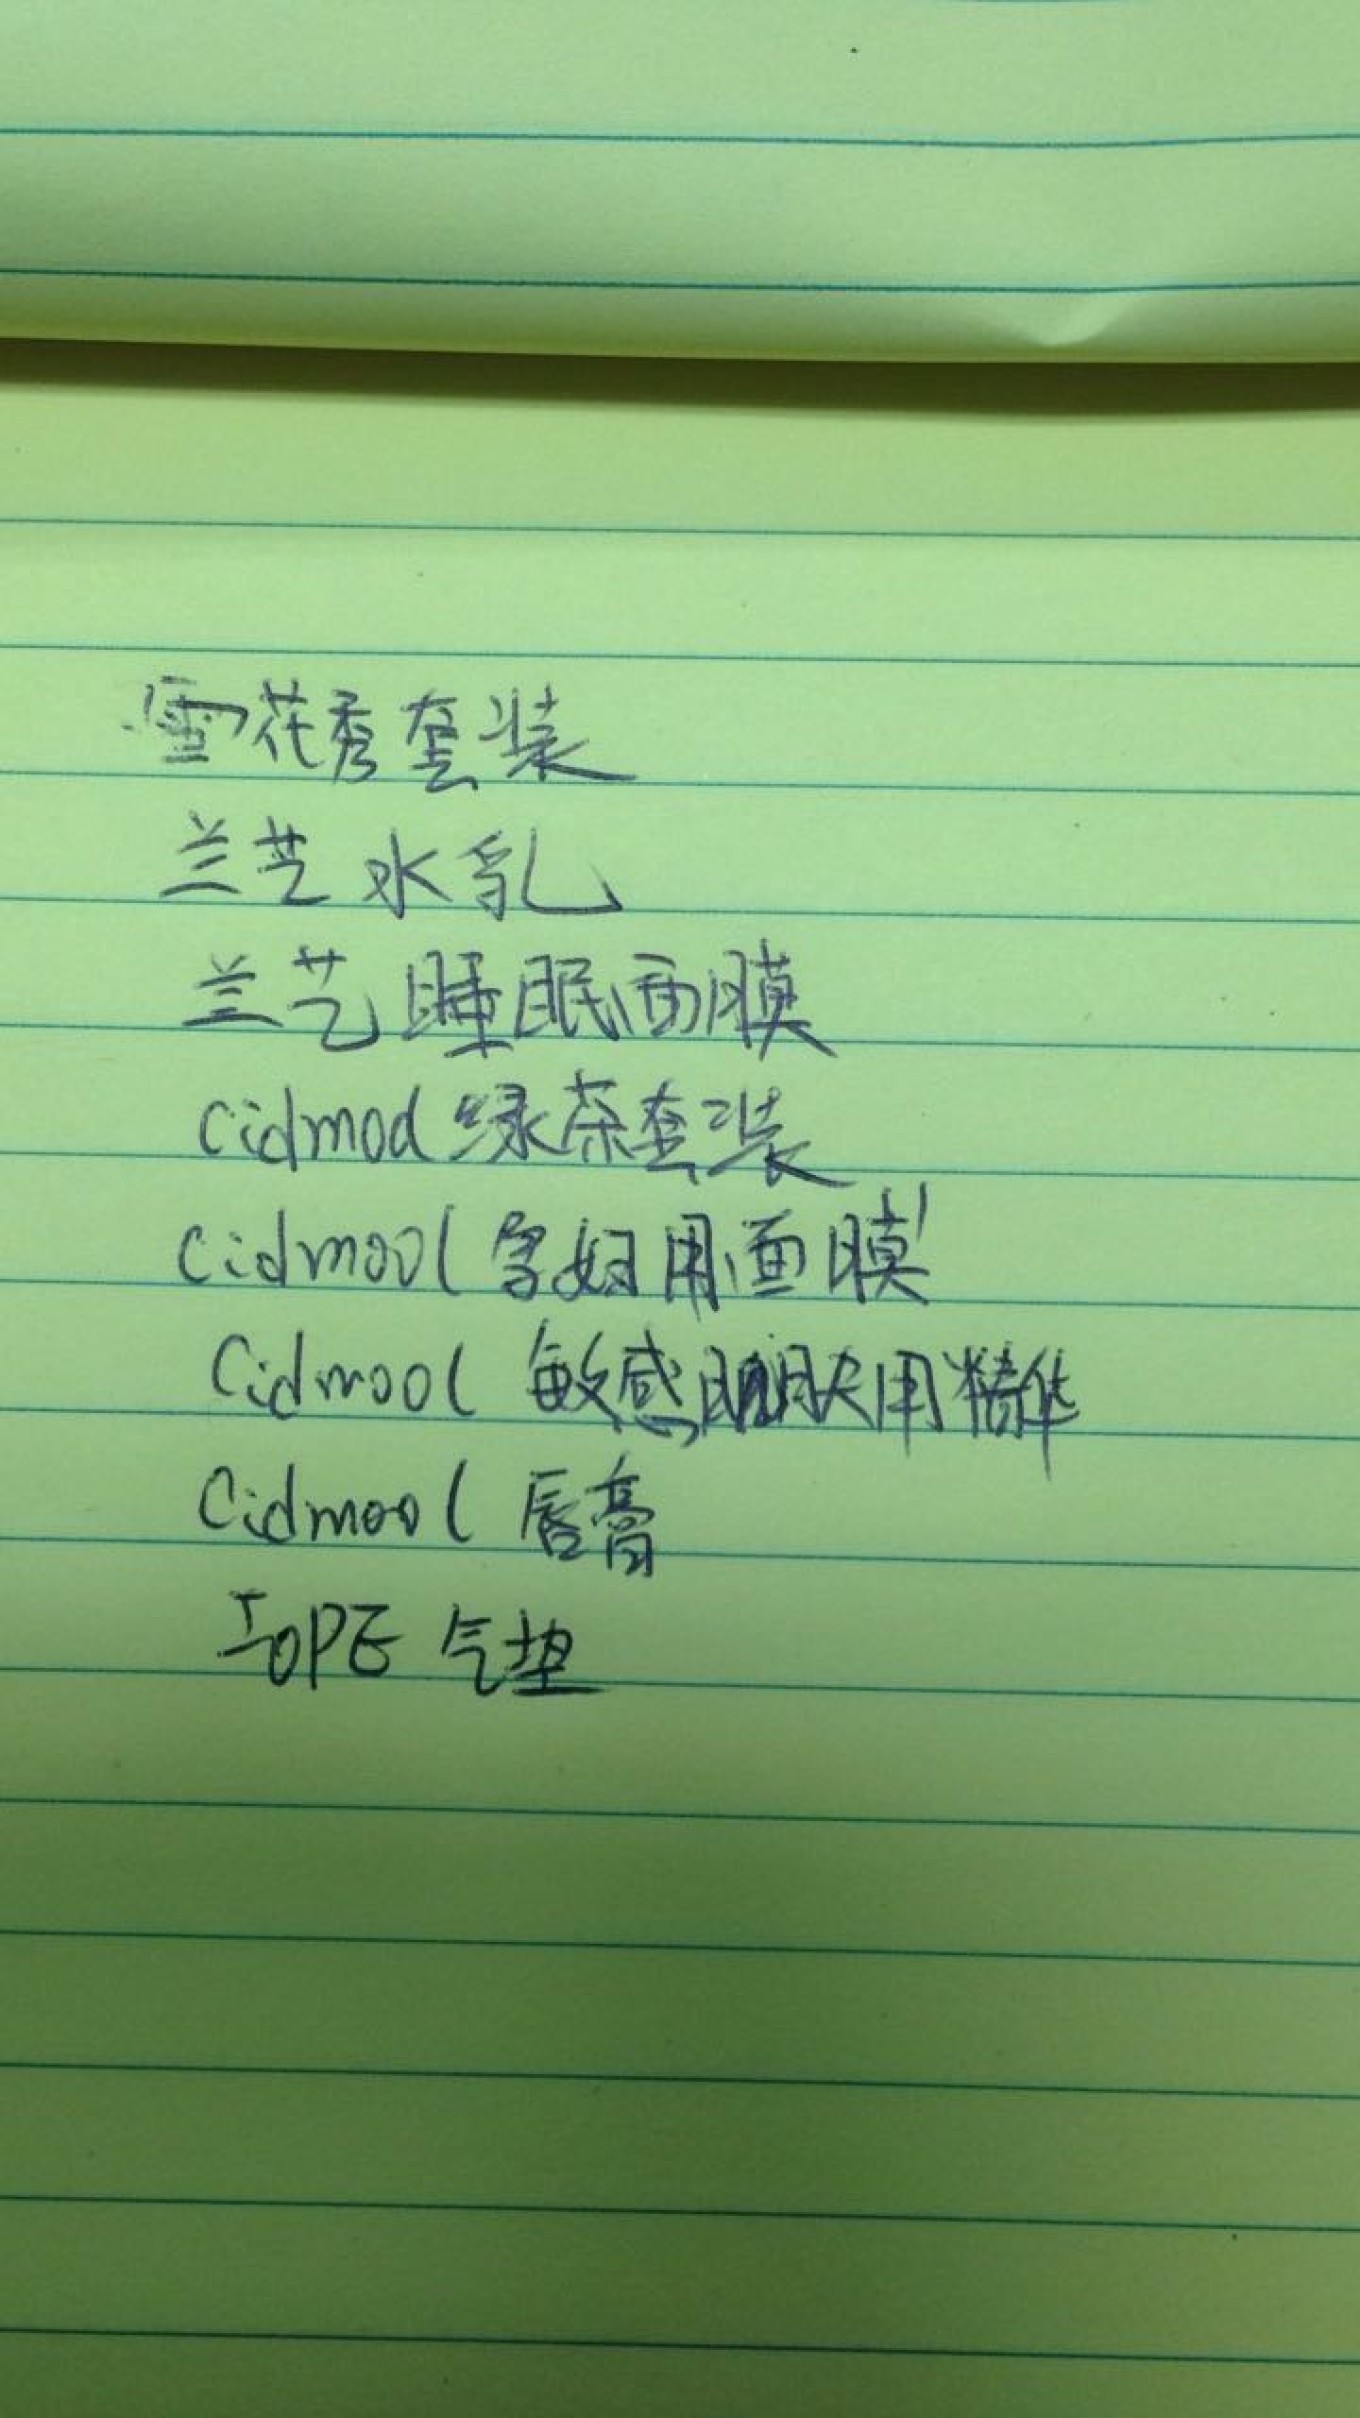 雪花秀套装
兰芝水乳
兰芝睡眠面膜
cidmool绿茶套装
cidmool孕妇用面膜
Cidmool敏感肌肤用精华
Cidmool唇膏
IOPE气垫